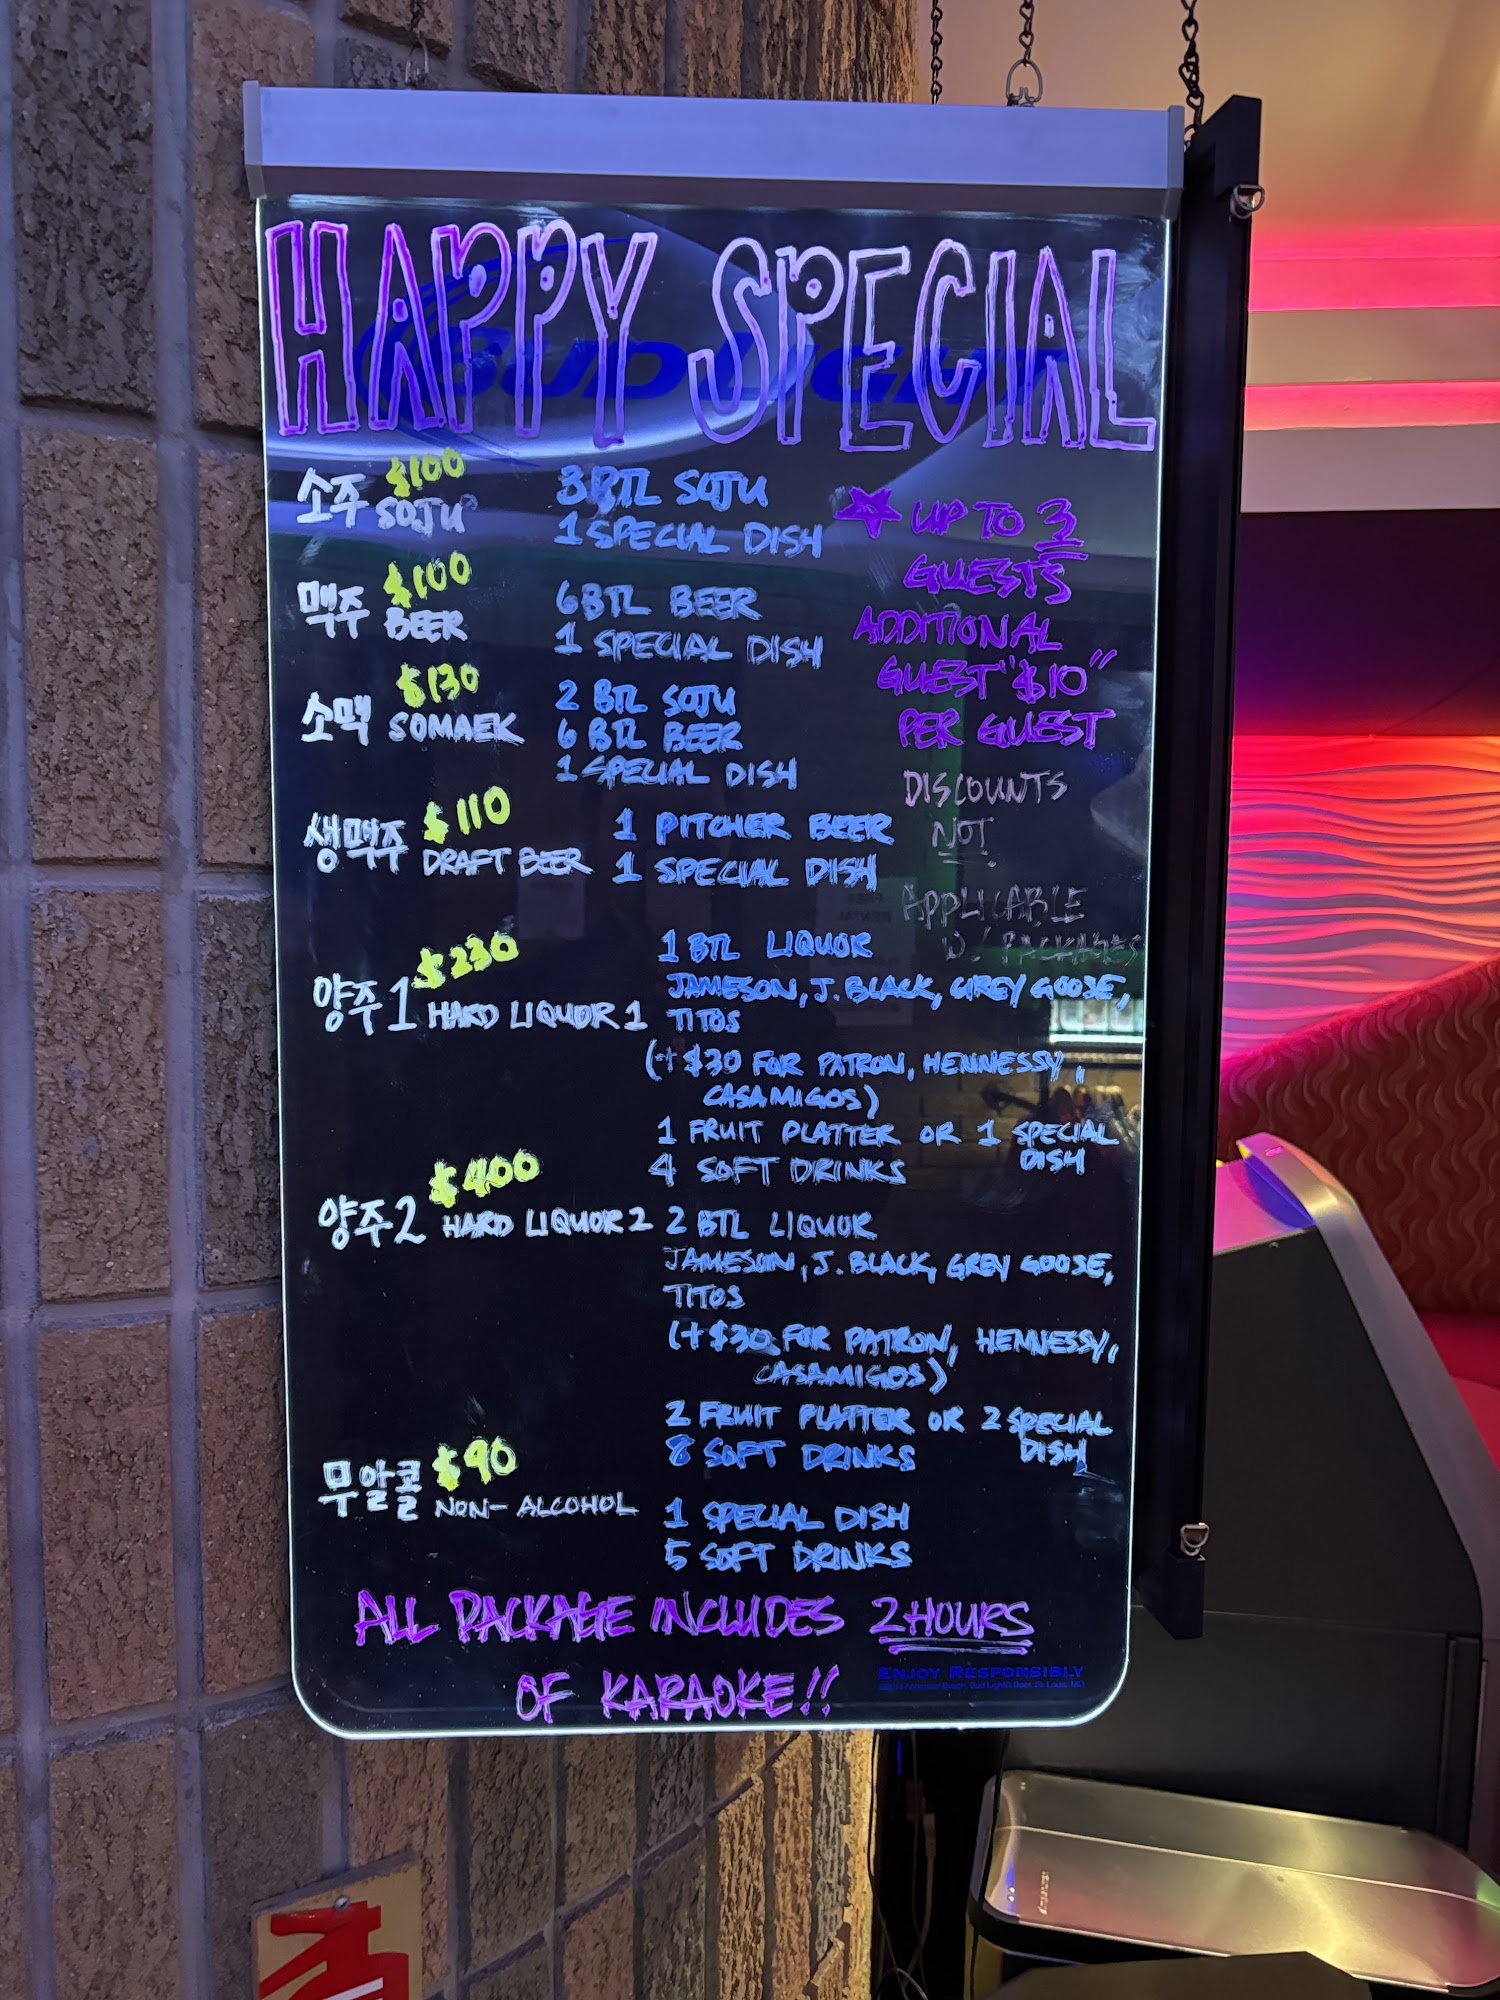 HAPPY SPECIAL
BUD LIGHT
소주 $100 SOJU
3 BTL SOJU
1 SPECIAL DISH
맥주 $100 BEER
6 BTL BEER
1 SPECIAL DISH
소맥 $130 SOMAEK
2 BTL SOJU
6 BTL BEER
1 SPECIAL DISH
생맥주 $110 DRAFT BEER
1 PITCHER BEER
1 SPECIAL DISH
★ UP TO 3
GUESTS
ADDITIONAL
GUEST "$10"
PER GUEST
DISCOUNTS
NOT
APPLICABLE
W/ PACKAGES
양주1 $230 HARD LIQUOR 1
1 BTL LIQUOR
JAMESON, J. BLACK, GREY GOOSE,
TITOS
(+$30 FOR PATRON, HENNESSY,
CASAMIGOS)
1 FRUIT PLATTER OR 1 SPECIAL
DISH
4 SOFT DRINKS
양주2 $400 HARD LIQUOR 2
2 BTL LIQUOR
JAMESON, J. BLACK, GREY GOOSE,
TITOS
(+$30 FOR PATRON, HENNESSY,
CASAMIGOS)
2 FRUIT PLATTER OR 2 SPECIAL
DISH
8 SOFT DRINKS
무알콜 $90 NON-ALCOHOL
1 SPECIAL DISH
5 SOFT DRINKS
ALL PACKAGE INCLUDES 2 HOURS
OF KARAOKE!!
ENJOY RESPONSIBLY